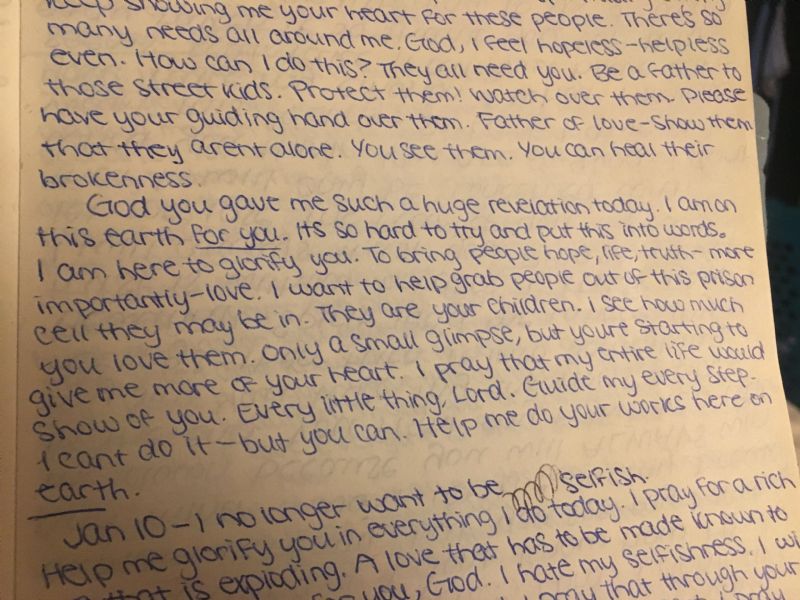 keep showing me your heart for these people. There's so
many needs all around me. God, I feel hopeless-helpless
even. How can I do this? They all need you. Be a Father to
those street kids. Protect them! Watch over them. Please
have your guiding hand over them. Father of love-show them
that they arent alone. You see them. You can heal their
brokenness.
God you gave me such a huge revelation today. I am on
this earth for you. Its so hard to try and put this into words.
I am here to glorify you. To bring people hope, life, truth- more
importantly-love. I want to help grab people out of this prison
cell they may be in. They are your children. I see how much
you love them. Only a small glimpse, but youre starting to
give me more of your heart. I pray that my entire life would
show of you. Every little thing, Lord. Guide my every step-
I cant do it-but you can. Help me do your works here on
earth.
Jan 10-I no longer want to be selfish.
Help me glorify you in everything I do today. I pray for a rich
that is exploding. A love that has to be made known to
you, God. I hate my selfishness. I
pray that through your